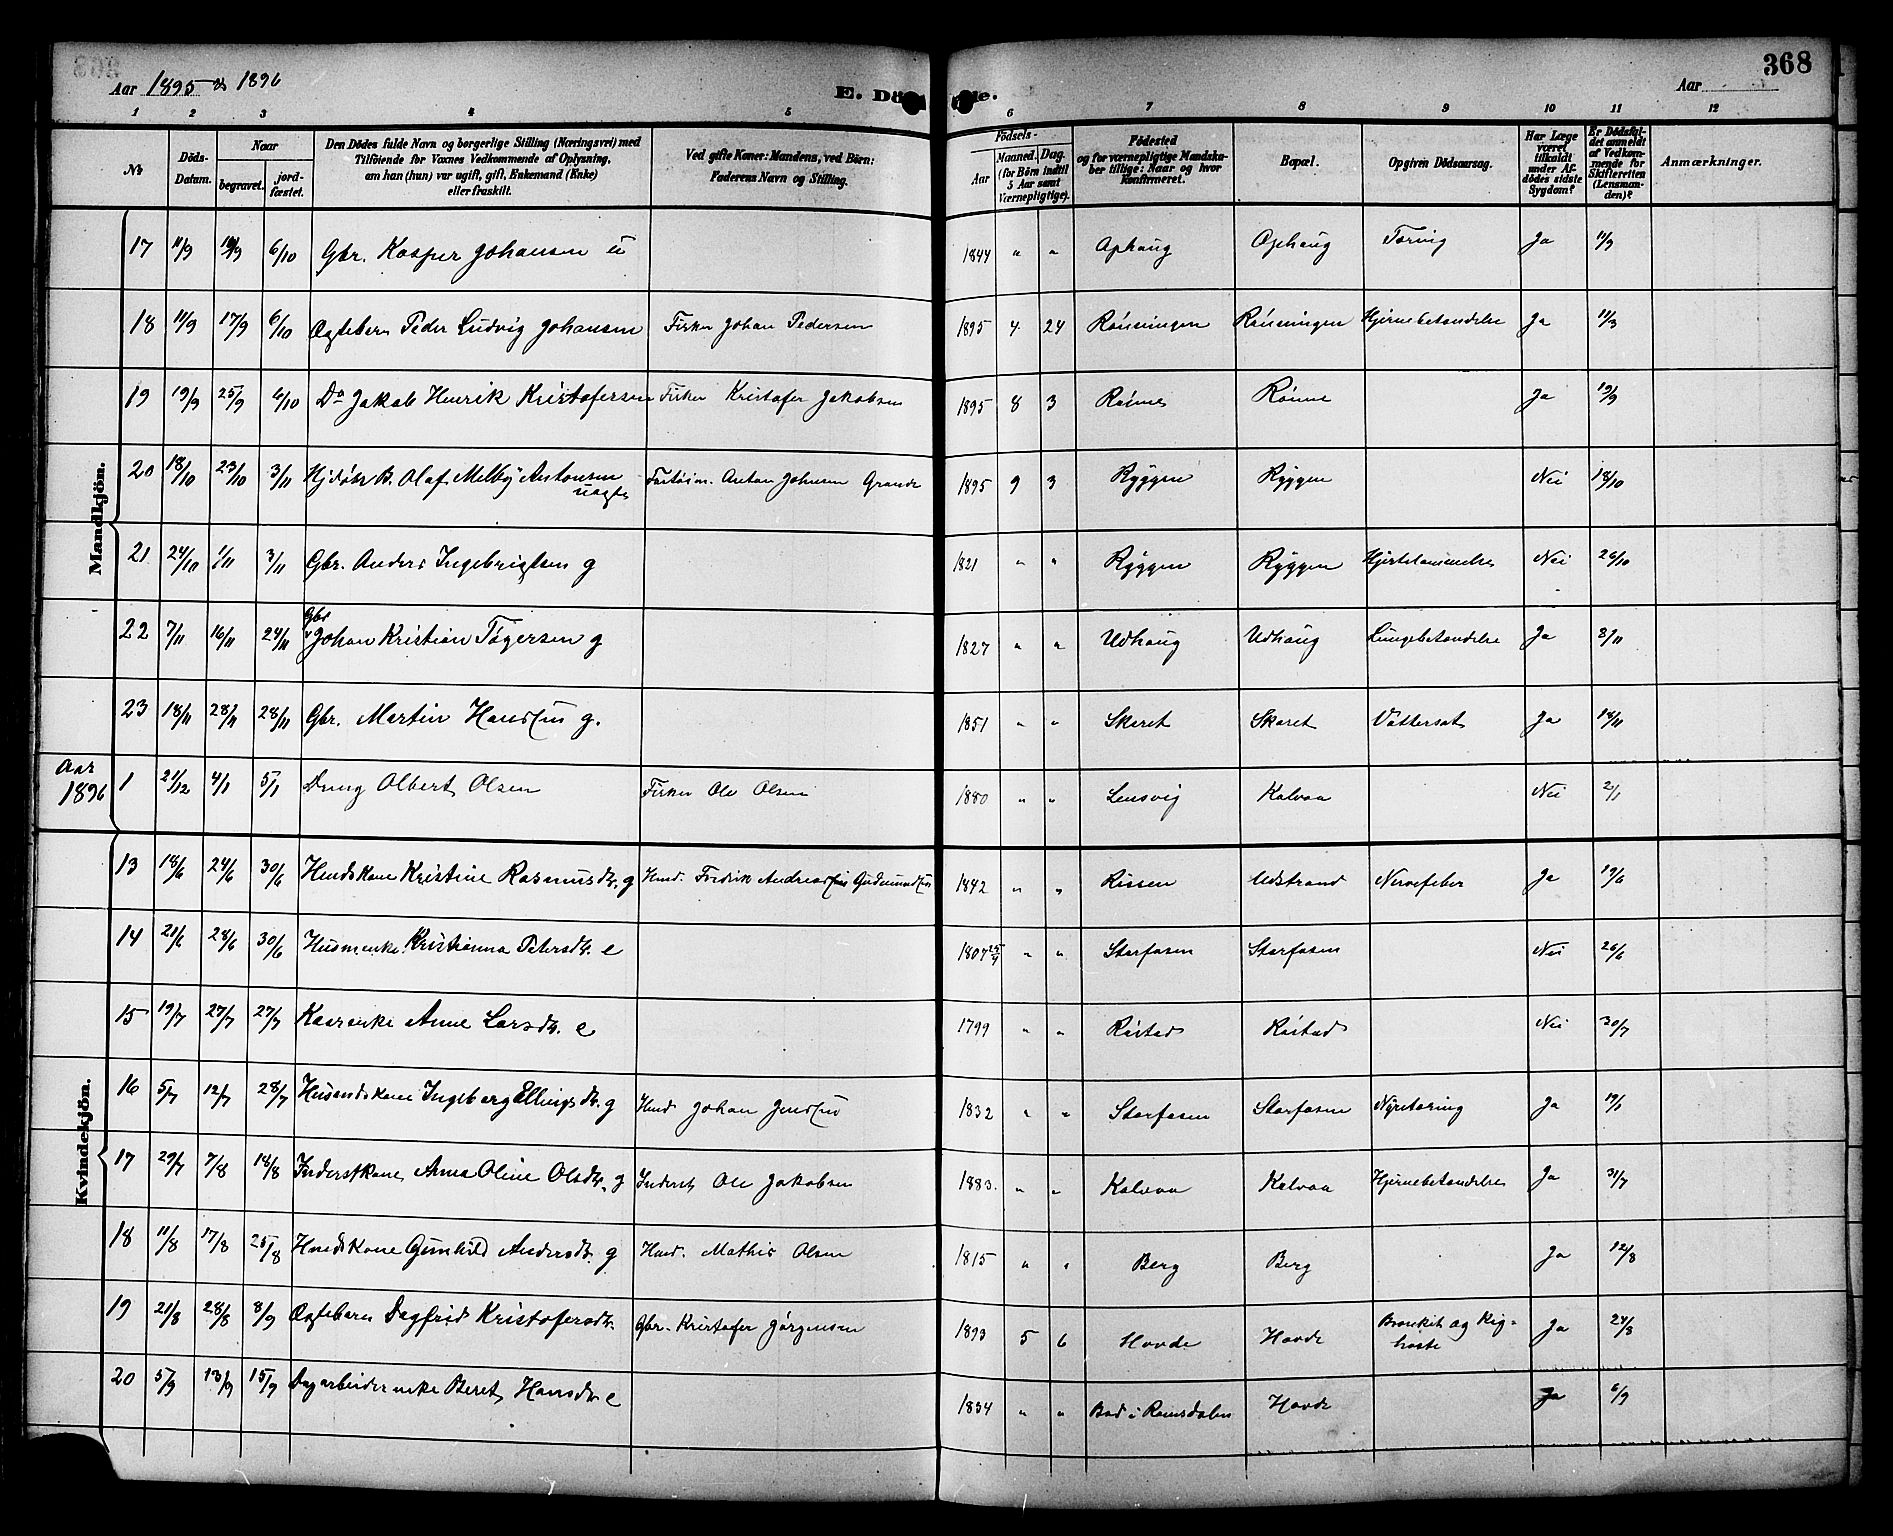 368
Aar 1895 & 1896
E. Dö de.
Aar
1 2 3 4 5 6 7 8 9 10 11 12
No
Döds-Datum.
Naar begravet. jord-fæstet.
Den Dödes fulde Navn og borgerlige Stilling (Næringsvei) med Tilföiende for Voxnes Vedkommende af Oplysning, om han (hun) var ugift, gift, Enkemand (Enke) eller fraskilt.
Ved gifte Koner: Mandens, ved Börn: Faderens Navn og Stilling.
Födsels- Aar Maaned. Dag. (for Börn indtil 5 Aar samt Værnepligtige).
Födested og for værnepligtige Mandskaber tillige: Naar og hvor Konfirmeret.
Bopæl.
Opgiven Dödsaarsag.
Har Læge været tilkaldt under Afdödes sidste Sygdom?
Er Dödsfaldet anmeldt af Vedkommende for Skifteretten (Lensmanden)?
Anmærkninger.
Mandkjön.
17 11/9 19/9 6/10 Gbr. Kasper Johansen u 1844 " " Ophaug Ophaug Tæring Ja 11/9
18 11/9 17/9 6/10 Ægtebarn Peder Ludvig Johansen Fisker Johan Pedersen 1895 4 24 Rönningen Rönningen Hjernebetændelse Ja 11/3
19 19/9 25/9 6/10 Do Jakob Henrik Kristofersen Fisker Kristofer Jakobsen 1895 8 3 Rönne Rönne Ja 19/9
20 18/10 23/10 3/11 Hjdöbt B. Olaf Melby Antonsen uægte Anton Johnsen Grande 1895 9 3 Ryggen Ryggen Nei 18/10
21 24/10 1/11 3/11 Gbr. Anders Ingebrigtsen g 1821 " " Ryggen Ryggen Hjertelammelse Nei 26/10
22 7/11 16/11 24/11 Gbr Johan Kristian Tøgersen g 1827 " " Udhaug Udhaug Lungebetændelse Ja 8/11
23 18/11 28/11 28/11 Gbr. Martin Hansen g. 1851 " " Skeret Skeret Vattersot Ja 18/11
Aar 1896 1 21/12 4/1 5/1 Dreng Olbert Olsen Fisker Ole Olsen 1880 " " Lensvig Kalvaa Nei 2/1
Kvindekjön.
13 18/6 24/6 30/6 Kristine Rasmusdtr. g Fredrik 1842 " " Rissen Udstrand Nervefeber Ja 19/6
14 21/6 28/6 30/6 Husmenke Kristianna Petersdtr. e 1807 25/4 " " Storfosen Storfosen Nei 26/6
15 19/7 27/7 27/7 Kaarenke Anne Larsdtr. e 1799 " " Röstad Röstad Nei 30/7
16 5/7 12/7 28/7 Husmdskone Ingeborg Ellingsdtr. g Husmd Johan Jensen 1832 " " Storfosen Storfosen Nyretæring Ja 19/1
17 29/7 7/8 18/8 Inderstkone Anna Oline Olsdtr. g Inderst Ole Jakobsen 1883. " " Kalvaa Kalvaa Hjernebetændelse Ja 31/7
18 11/8 17/8 25/8 Husmdskone Gunhild Andersdtr. g Husmd. Mathis Olsen 1815 " " Berg Berg Ja 12/8
19 21/8 28/8 8/9 Ægtebarn Dagfrid Kristofersdtr. Gbr. Kristofer Jørgensen 1893 5 6 Hovde Hovde Bronkit og Kig-hoste Ja 24/8
20 5/9 13/9 15/9 Dagarbeiderenke Beret Hansdtr e 1834 " " Bod i Romsdalen Hovde Ja 6/9